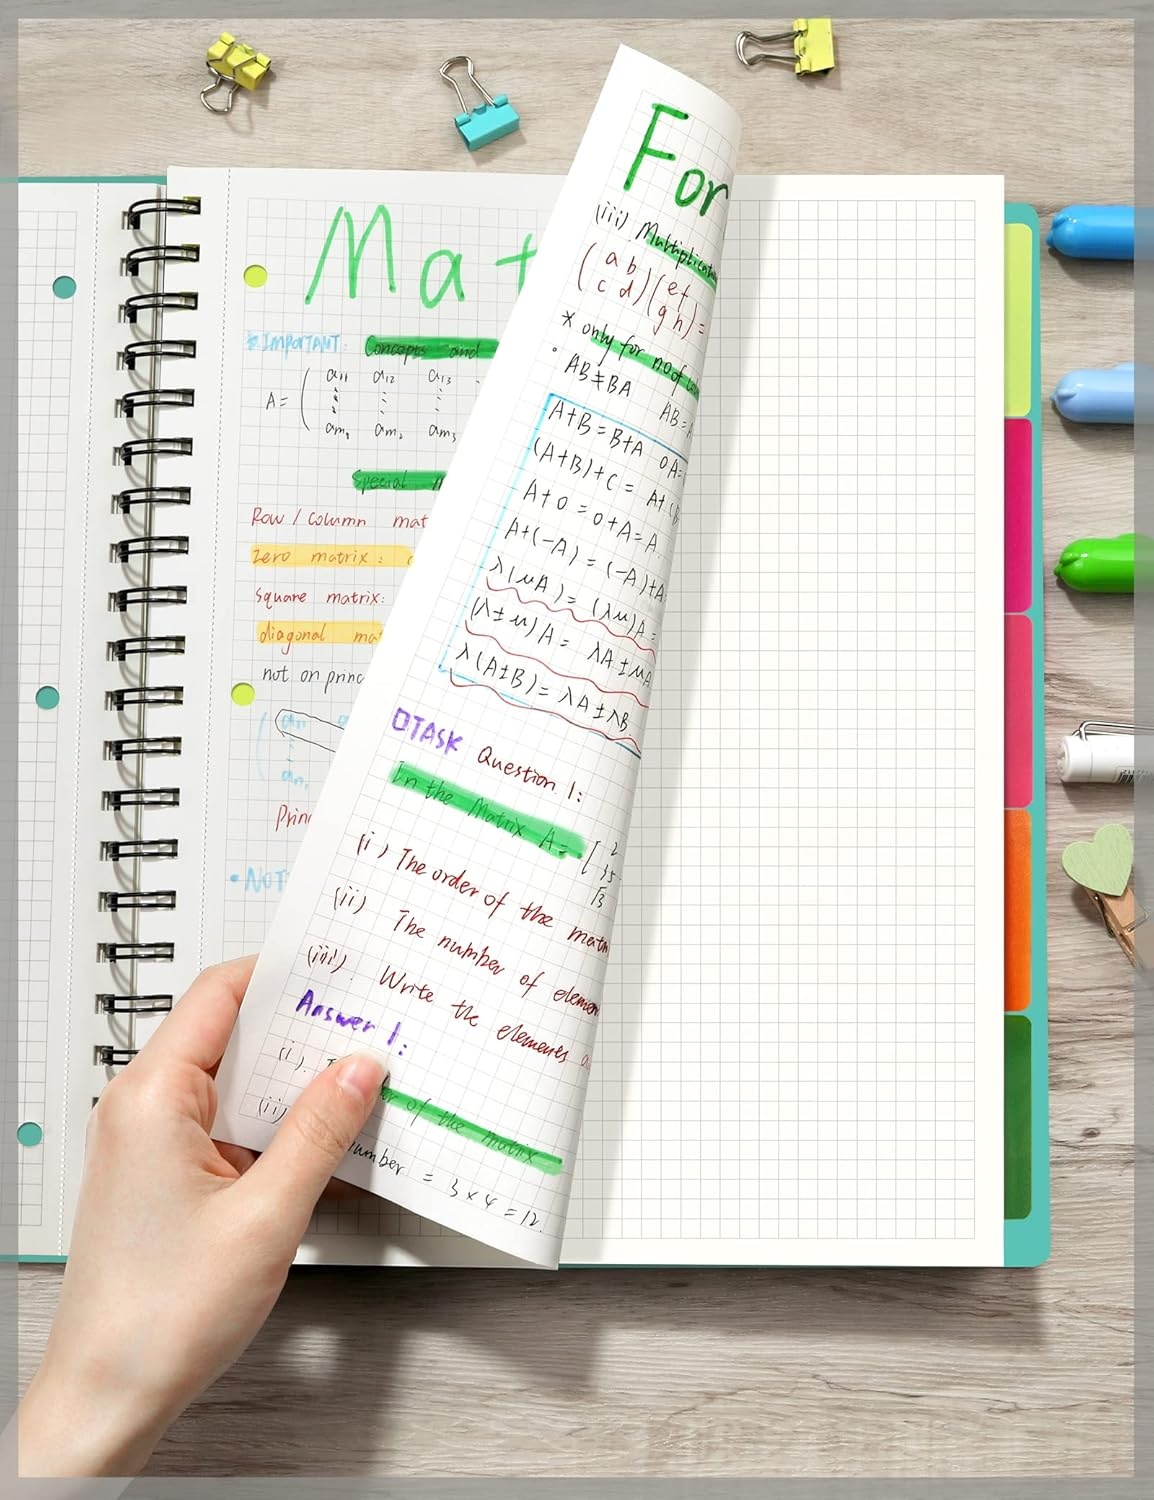 Mat
IMPORTANT: Concepts and
A= ( a11 a12 a13
am1 am2 am3
Special
Row / Column mat
Zero matrix:
square matrix:
diagonal mat
not on princ
a11
am1
Prin
NOT
For
(iii) Multiplication
( a b
c d ) ( e f
g h ) =
* only for no of
· AB≠BA AB=
A+B=B+A 0A=
(A+B)+C = A+(B
A+0=0+A=A.
A+(-A) = (-A)+A
λ(μA) = (λμ)A =
(λ±μ)A = λA±μA
λ(A±B) = λA±λB
TASK Question 1:
In the Matrix A= [ 2
35
√3
(i) The order of the matr
(ii) The number of elemen
(iii). Write the elements a
Answer 1:
(i). of the matrix
(ii) number = 3×4=12.